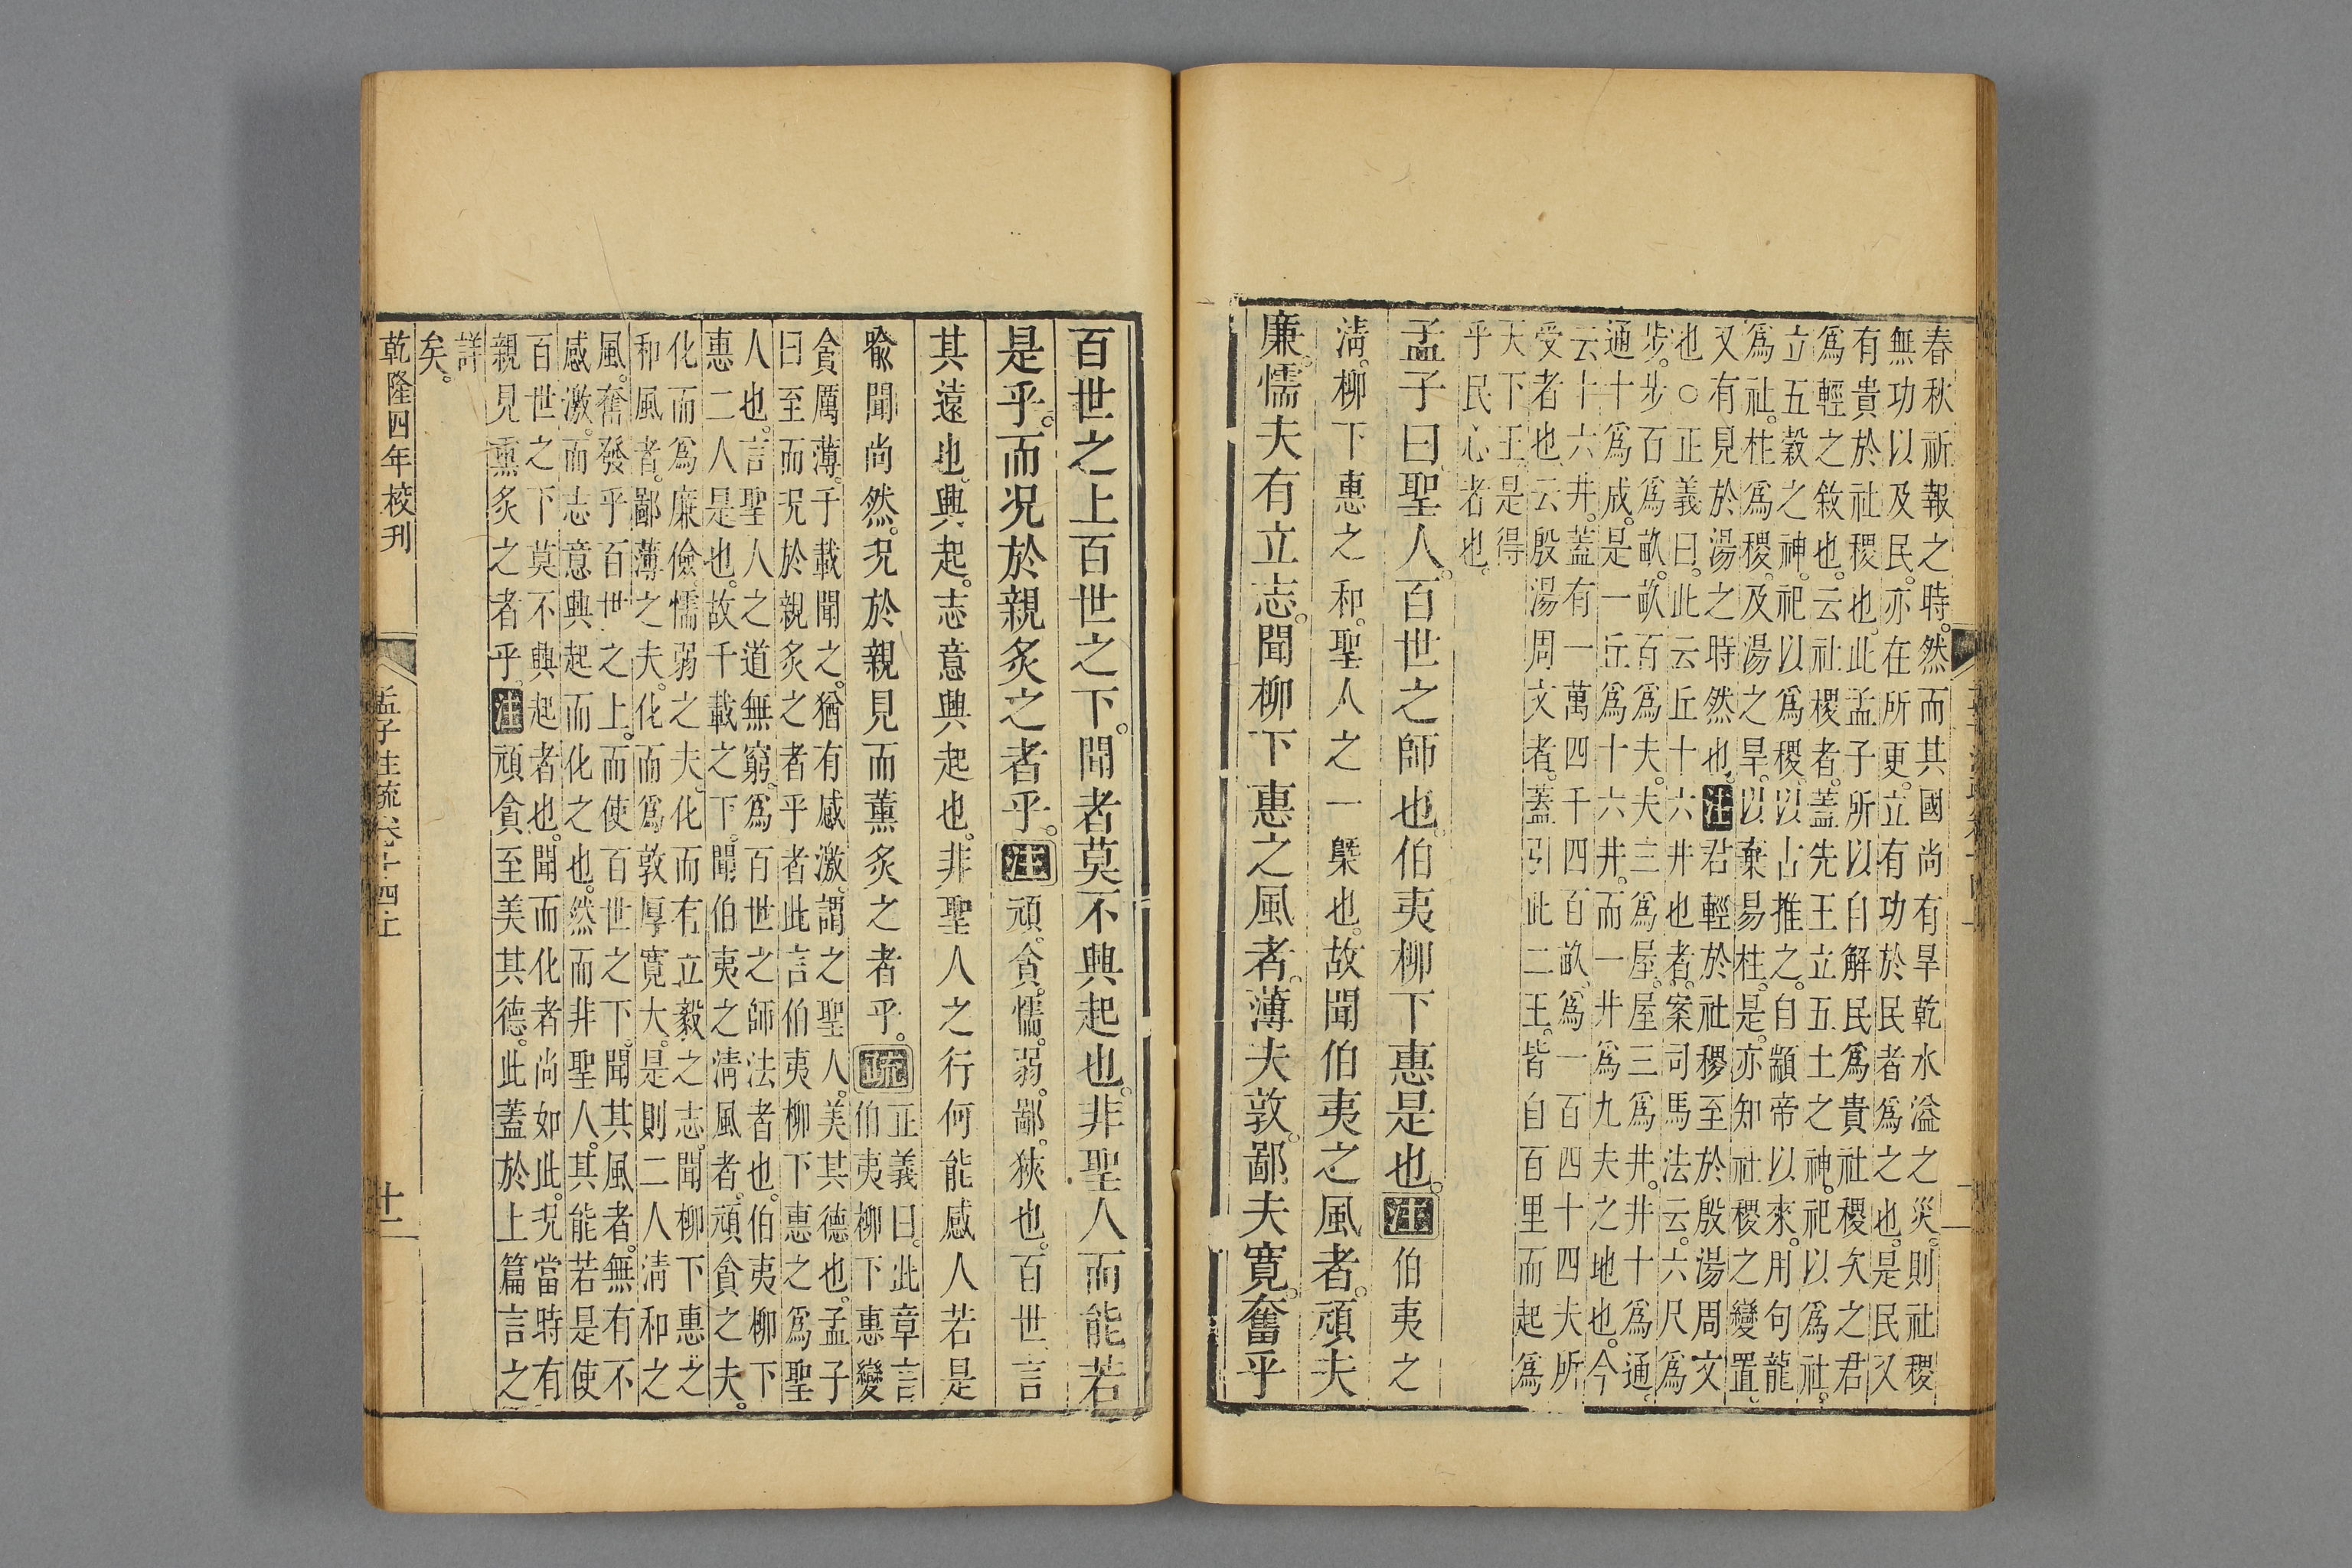 春秋祈報之時。然而其國尚有旱乾水溢之災。則社稷
無功以及民。亦在所更立。有功於民者爲之也。是民又
有貴於社稷也。此孟子所以自解民爲貴社稷次之君
爲輕之敘也。云社稷者。蓋先王立五土之神。祀以爲社。
立五穀之神。祀以爲稷。以古推之。自顓帝以來。用句龍
爲社。柱爲稷。及湯之旱。以棄易柱。是亦知社稷之變置。
又有見於湯之時然也。注君輕於社稷至於殷湯周文
也○正義曰。此云丘十六井也者。案司馬法云。六尺爲
步。步百爲畝。畝百爲夫。夫三爲屋。屋三爲井。井十爲通。
通十爲成。是一丘爲十六井。而一井爲九夫之地也。今
云十六井。蓋有一萬四千四百畝。爲一百四十四夫所
受者也。云殷湯周文者。蓋引此二王。皆自百里而起爲
天下王。是得
乎民心者也。
孟子曰聖人。百世之師也。伯夷柳下惠是也。注伯夷之
淸。柳下惠之和。聖人之一槩也。故聞伯夷之風者。頑夫
廉。懦夫有立志。聞柳下惠之風者。薄夫敦。鄙夫寬。奮乎
百世之上。百世之下。聞者莫不興起也。非聖人而能若
是乎。而況於親炙之者乎。注頑。貪。懦。弱。鄙。狹也。百世。言
其遠也。興起。志意興起也。非聖人之行何能感人若是
喩聞尚然。況於親見而薰炙之者乎。疏正義曰。此章言
伯夷柳下惠變
貪厲薄。千載聞之。猶有感激。謂之聖人。美其德也。孟子
曰至而況於親炙之者乎者此言伯夷柳下惠之爲聖
人也。言聖人之道無窮。爲百世之師法者也。伯夷柳下
惠二人是也。故千載之下。聞伯夷之淸風者。頑貪之夫。
化而爲廉儉。懦弱之夫。化而有立毅之志。聞柳下惠之
和風者。鄙薄之夫。化而爲敦厚寬大。是則二人淸和之
風。奮發乎百世之上。而使百世之下。聞其風者。無有不
感激。而志意興起而化之也。然而非聖人。其能若是使
百世之下莫不興起者也。聞而化者尚如此。況當時有
親見熏炙之者乎。注頑貪至美其德。此蓋於上篇言之
詳
矣。
乾隆四年校刊
孟子注疏卷十四上
十二